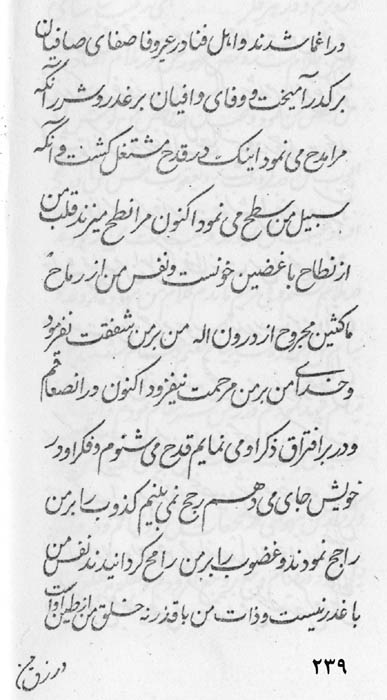 در اغما شدند و اهل فنا در عیر و فا صفای صافیان
بر کدر آمیخت و وفای وافیان بر غدر و شر ر آنکه
مرا مدح می نمود اینک در قدح مشتغل کشت و آنکه
سبیل من سطح می نمود اکنون مرا نطح میزند قلب من
از نطاح با غضین خونست و نفس من از رماح
ماکثین مجروح از ورون اله من بر من شفقت نفرمود
و خدای من بر من مرحمت نیفزود اکنون در انصعاقم
و در بر افتراق ذکر او می نمایم قدح می شنوم و فکر او در
خویش جای می دهم رجح نمی بینم کذوب را بر من
راجح نمودند و غضوب را بر من رامح کردانیدند نفس من
با غدر نیست و ذات من با قذر نه خلق من از طین
در زق من
۲۳۹